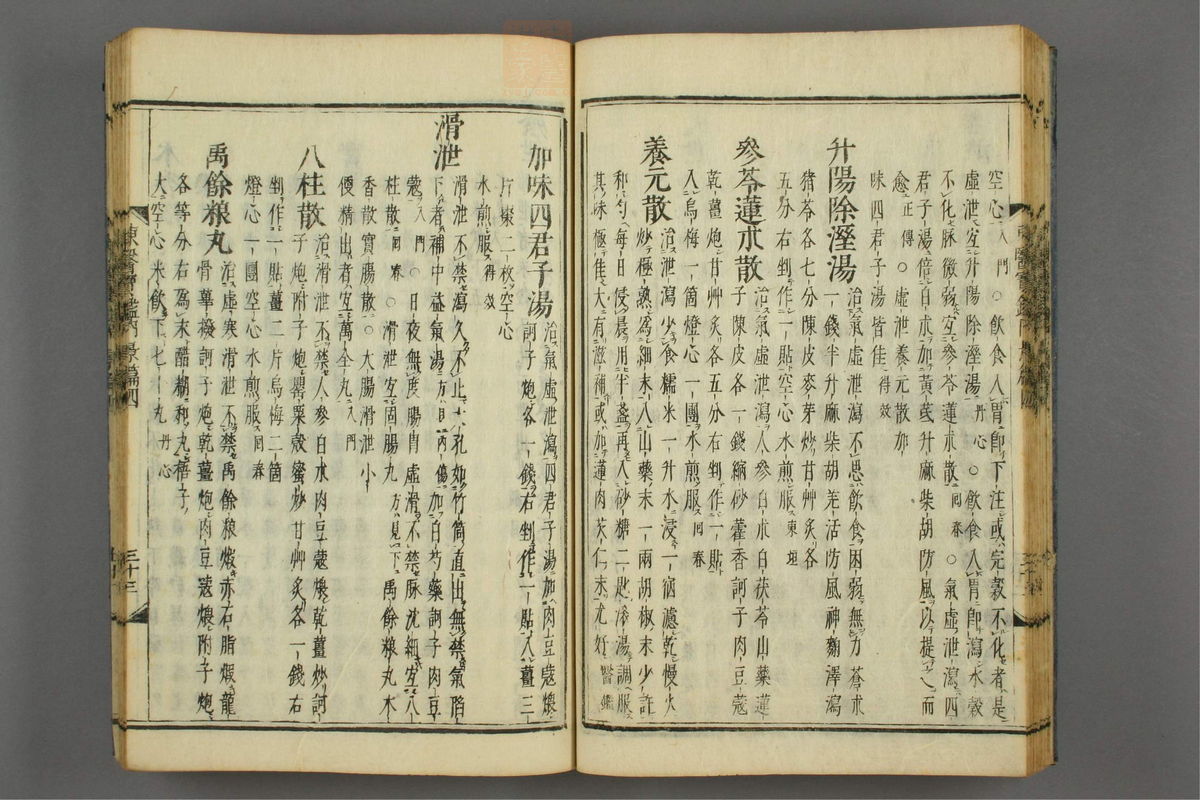 空心入門○飮食入胃卽下注或完穀不化者是
虛泄宜升陽除溼湯丹心○飮食入胃卽瀉水穀
不化脉微弱宜參苓蓮朮散回春○氣虛泄瀉四
君子湯倍白朮加黃芪升麻柴胡防風以提之而
愈正傳○虛泄養元散加
味四君子湯皆佳得效
升陽除溼湯治氣虛泄瀉不思飮食困弱無力蒼朮
一錢半升麻柴胡羌活防風神麴澤瀉
猪苓各七分陳皮麥芽炒甘艸炙各
五分右剉作一貼空心水煎服東垣
參苓蓮朮散治氣虛泄瀉人參白朮白茯苓山藥蓮
子陳皮各一錢縮砂藿香訶子肉豆蔻
乾薑炮甘艸炙各五分右剉作一貼
入烏梅一箇燈心一團水煎服回春
養元散治泄瀉少食糯米一升水浸一宿濾乾慢火
炒極熟爲細末入山藥末一兩胡椒末少許
和勻每日侵晨用半盞再入砂糖二匙滚湯調服
其味極佳大有滋補或加蓮肉芡仁末尤好醫鑑
加味四君子湯治氣虛泄瀉四君子湯加肉豆蔻煨
訶子炮各一錢右剉作一貼入薑三
片棗二枚空心
水煎服得效
滑泄
滑泄不禁瀉久不止大孔如竹筒直出無禁氣陷
下者補中益氣湯方見內傷加白芍藥訶子肉豆
蔻入門○日夜無度腸胃虛滑不禁脉沈細宜八
桂散回春○滑泄宜固腸丸方見下禹餘粮丸木
香散實腸散○大腸滑泄小
便精出者宜萬全丸入門
八柱散治滑泄不禁人參白朮肉豆蔻煨乾薑炒訶
子炮附子炮罌粟殼蜜炒甘艸炙各一錢右
剉作一貼薑二片烏梅二箇
燈心一團空心水煎服回春
禹餘粮丸治虛寒滑泄不禁禹餘粮煆赤石脂煆龍
骨蓽撥訶子炮乾薑炮肉豆蔻煨附子炮
各等分右爲末醋糊和丸梧子
大空心米飮下七十丸丹心
東醫寶鑑內景篇四
三十三